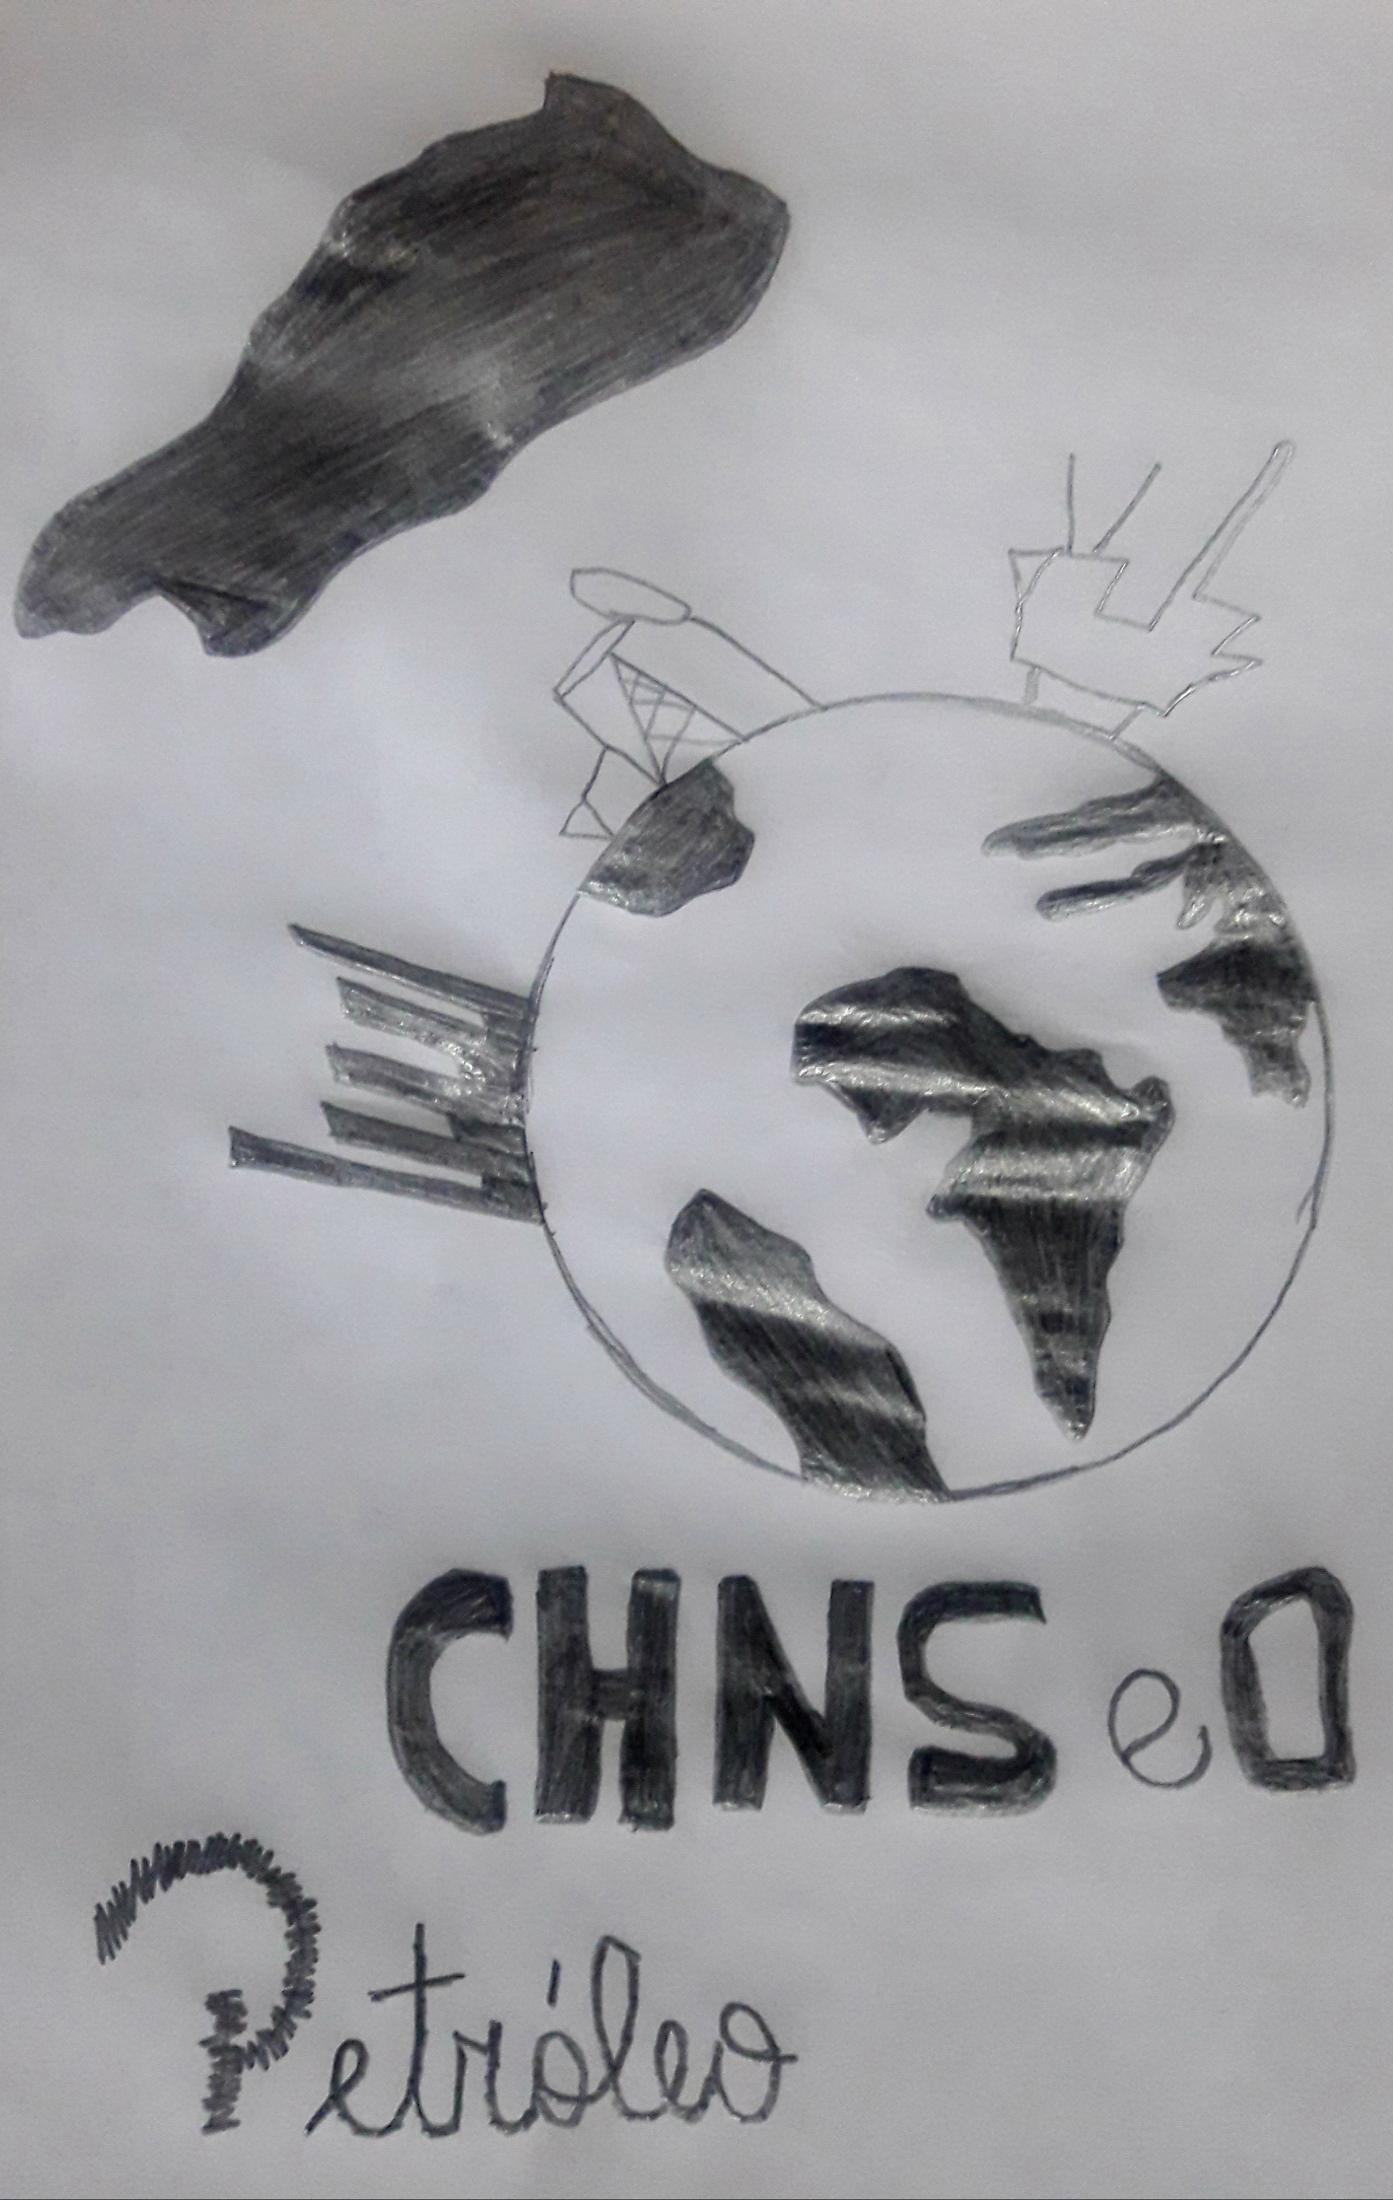 CHNS e O
Petróleo